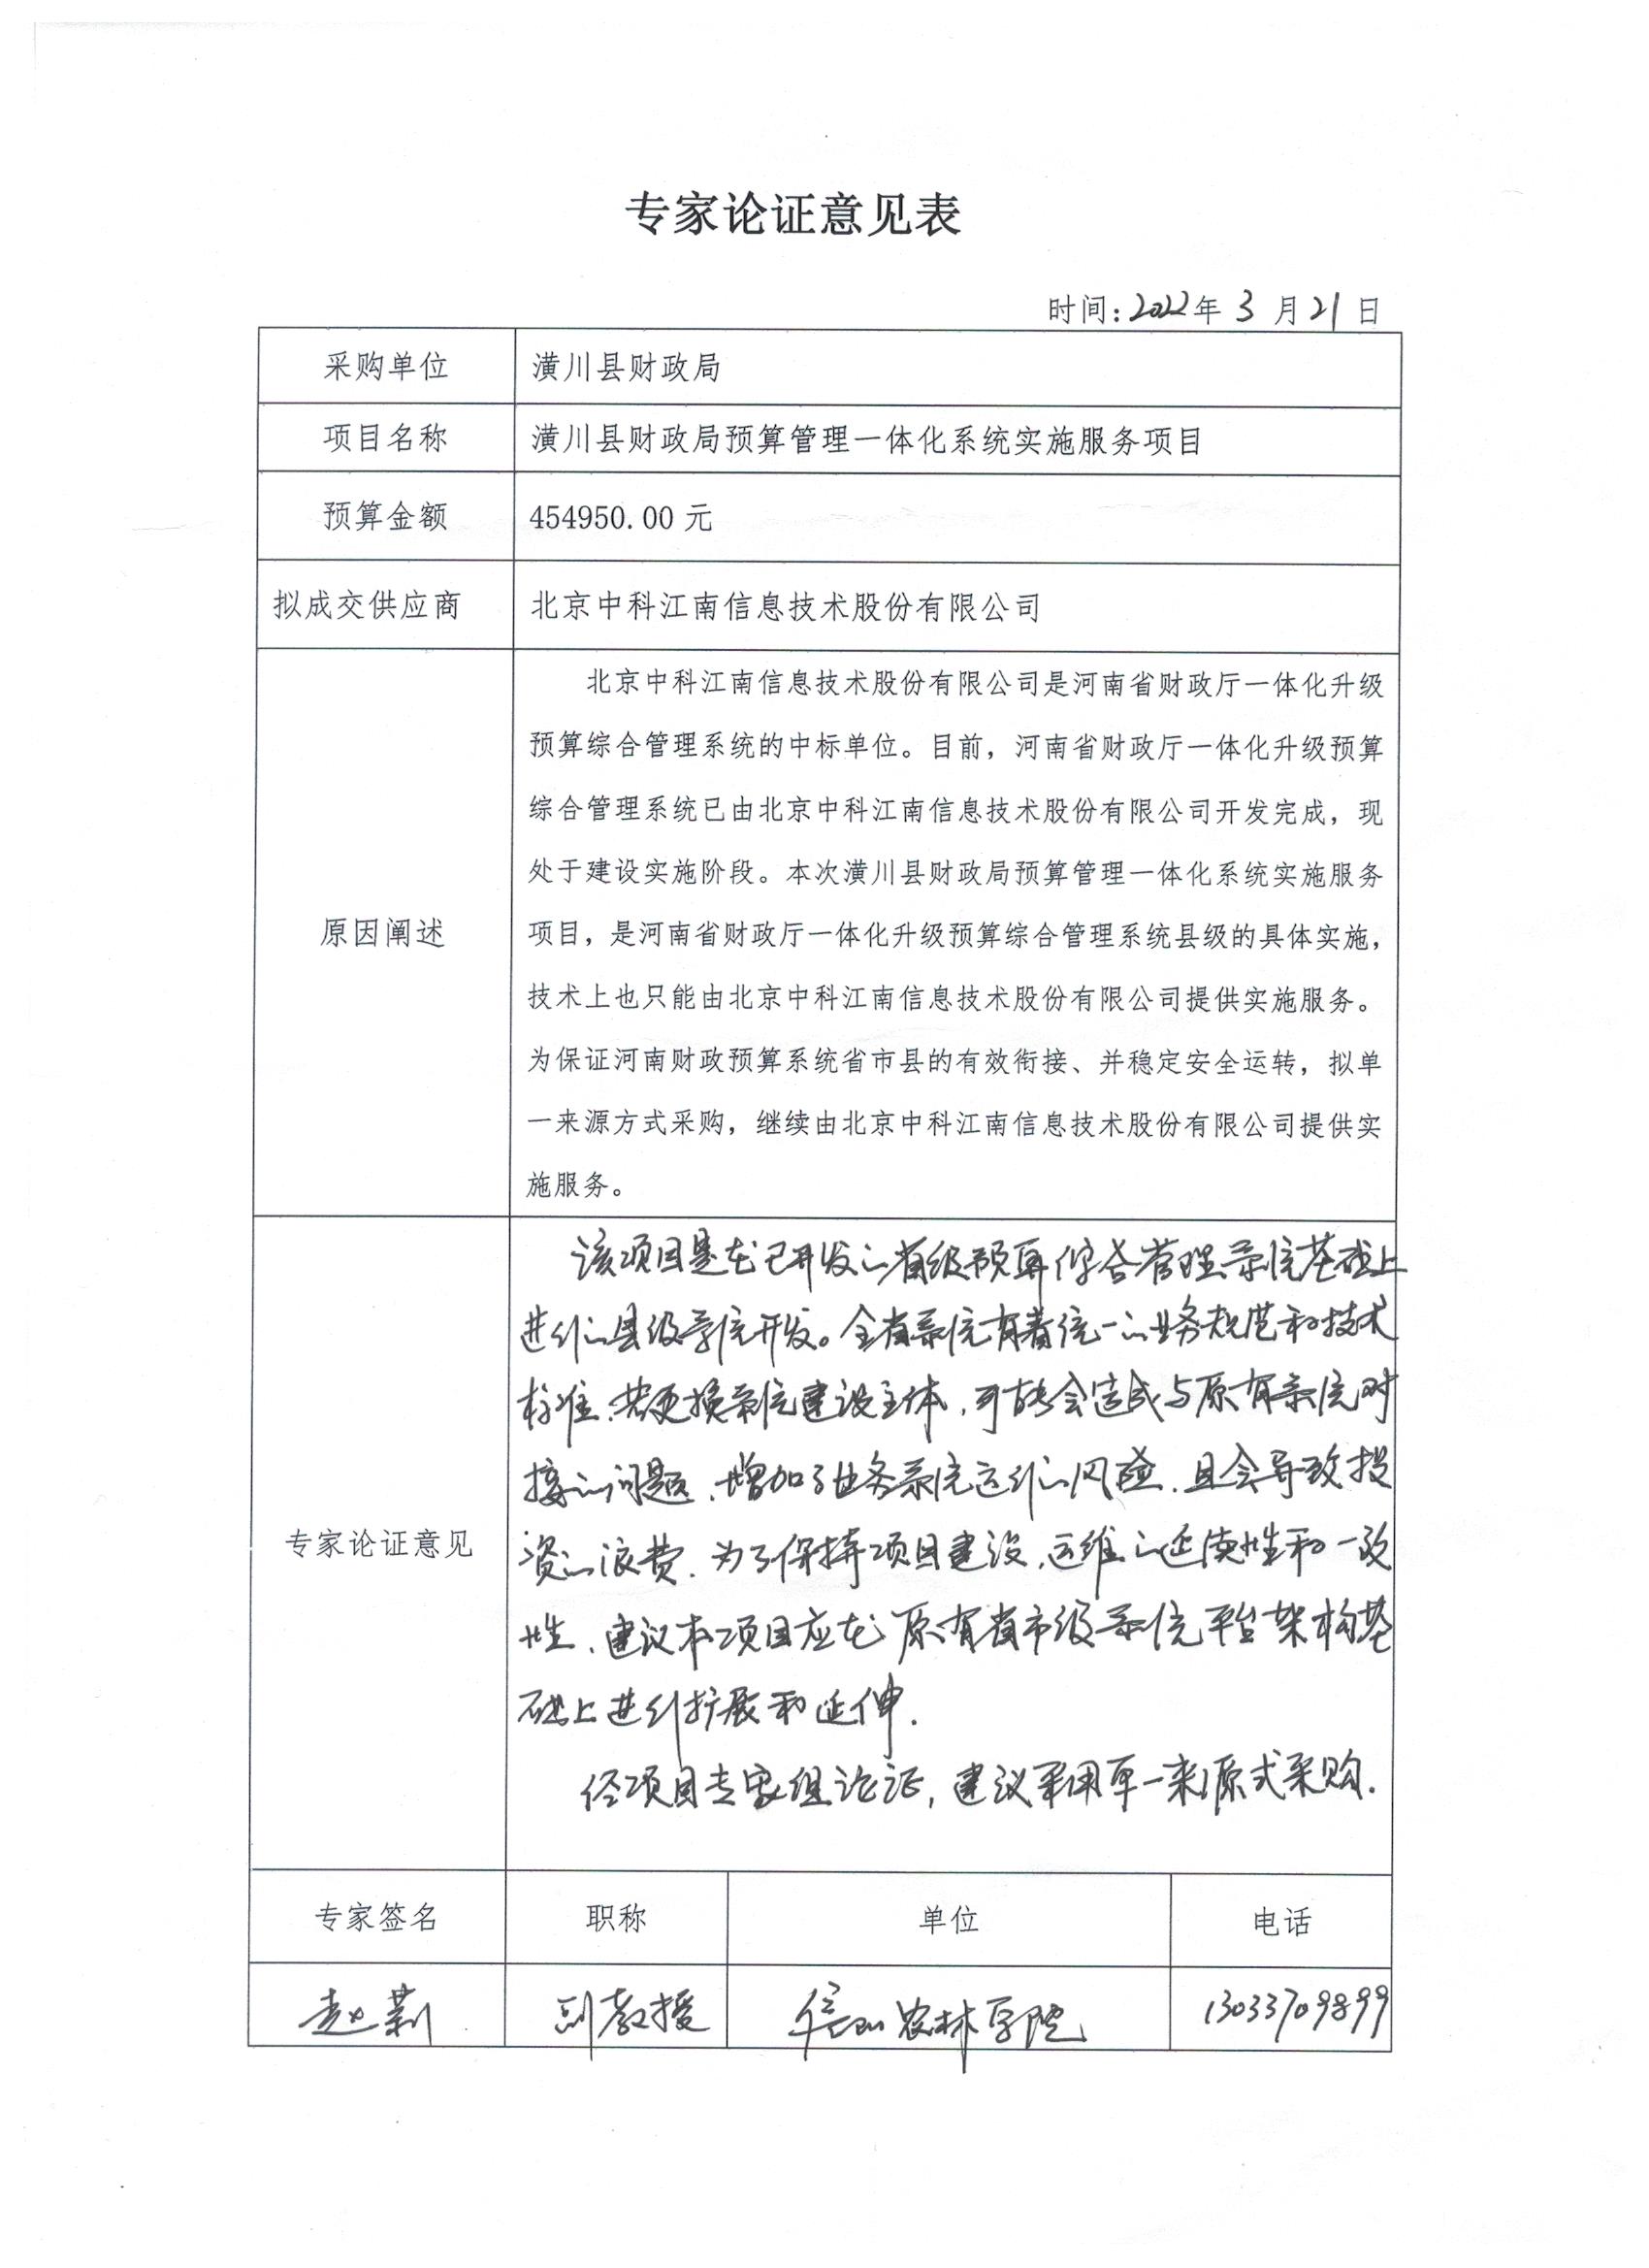 专家论证意见表
时间:2022年3月21日
采购单位 潢川县财政局
项目名称 潢川县财政局预算管理一体化系统实施服务项目
预算金额 454950.00元
拟成交供应商 北京中科江南信息技术股份有限公司
原因阐述
北京中科江南信息技术股份有限公司是河南省财政厅一体化升级
预算综合管理系统的中标单位。目前，河南省财政厅一体化升级预算
综合管理系统已由北京中科江南信息技术股份有限公司开发完成，现
处于建设实施阶段。本次潢川县财政局预算管理一体化系统实施服务
项目，是河南省财政厅一体化升级预算综合管理系统县级的具体实施，
技术上也只能由北京中科江南信息技术股份有限公司提供实施服务。
为保证河南财政预算系统省市县的有效衔接、并稳定安全运转，拟单
一来源方式采购，继续由北京中科江南信息技术股份有限公司提供实
施服务。
专家论证意见
该项目是在已开发的省级预算综合管理系统基础上
进行的县级系统开发。全省系统有着统一的业务规范和技术
标准，若更换系统建设主体，可能会造成与原有系统对
接的问题，增加了业务系统运行的风险，且会导致投
资的浪费.为了保持项目建设、运维的延续性和一致
性，建议本项目应在原有省市级系统平台架构基
础上进行扩展和延伸.
经项目专家组论证，建议采用单一来源式采购.
专家签名 职称 单位 电话
赵莉 副教授 信阳农林学院 13033709899